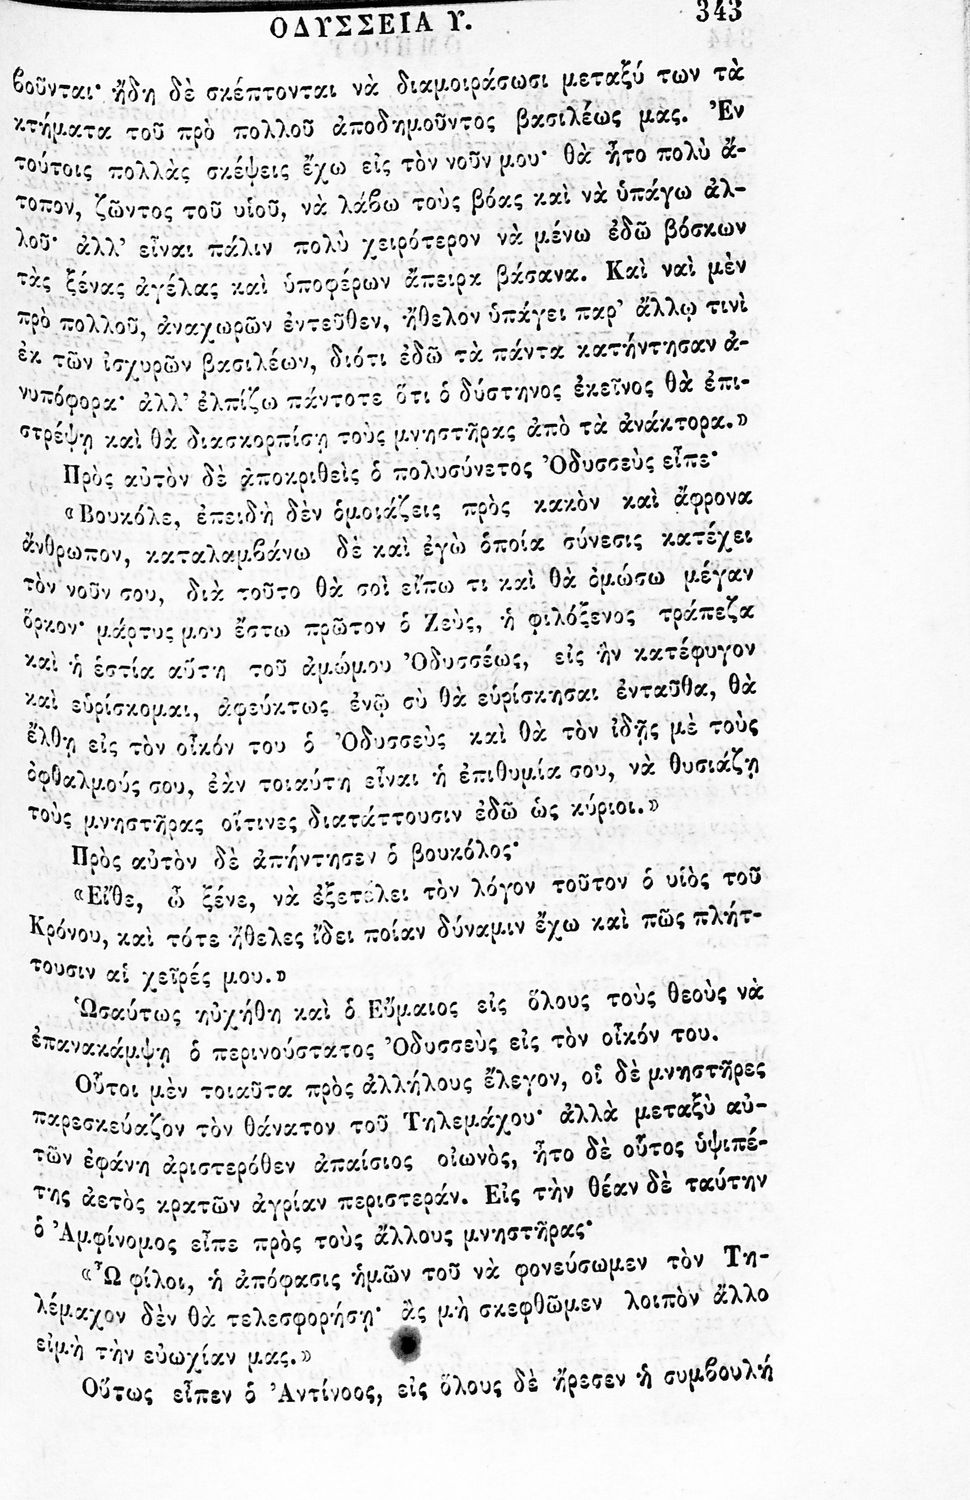 ΟΔΥΣΣΕΙΑ Υ.
343
βοῦνται· ἤδη δὲ σκέπτονται νὰ διαμοιράσωσι μεταξύ των τὰ
κτήματα τοῦ πρὸ πολλοῦ ἀποδημοῦντος βασιλέως μας. Ἐν
τούτοις πολλὰς σκέψεις ἔχω εἰς τὸν νοῦν μου· θὰ ἦτο πολὺ ἄ-
τοπον, ζῶντος τοῦ υἱοῦ, νὰ λάβω τοὺς βόας καὶ νὰ ὑπάγω ἀλ-
λοῦ· ἀλλ' εἶναι πάλιν πολὺ χειρότερον νὰ μένω ἐδῶ βόσκων
τὰς ξένας ἀγέλας καὶ ὑποφέρων ἄπειρα βάσανα. Καὶ ναὶ μὲν
πρὸ πολλοῦ, ἀναχωρῶν ἐντεῦθεν, ἤθελον ὑπάγει παρ' ἄλλῳ τινὶ
ἐκ τῶν ἰσχυρῶν βασιλέων, διότι ἐδῶ τὰ πάντα κατήντησαν ἀ-
νυπόφορα· ἀλλ' ἐλπίζω πάντοτε ὅτι ὁ δύστηνος ἐκεῖνος θὰ ἐπι-
στρέψῃ καὶ θὰ διασκορπίσῃ τοὺς μνηστῆρας ἀπὸ τὰ ἀνάκτορα.»
Πρὸς αὐτὸν δὲ ἀποκριθεὶς ὁ πολυσύνετος Ὀδυσσεὺς εἶπε·
«Βουκόλε, ἐπειδὴ δὲν ὁμοιάζεις πρὸς κακὸν καὶ ἄφρονα
ἄνθρωπον, καταλαμβάνω δὲ καὶ ἐγὼ ὁποία σύνεσις κατέχει
τὸν νοῦν σου, διὰ τοῦτο θὰ σοὶ εἴπω τι καὶ θὰ ὁμώσω μέγαν
ὅρκον· μάρτυς μου ἔστω πρῶτον ὁ Ζεὺς, ἡ φιλόξενος τράπεζα
καὶ ἡ ἑστία αὕτη τοῦ ἀμώμου Ὀδυσσέως, εἰς ἣν κατέφυγον
καὶ εὑρίσκομαι, ἀφεύκτως ἐνῷ σὺ θὰ εὑρίσκησαι ἐνταῦθα, θὰ
ἔλθῃ εἰς τὸν οἶκόν του ὁ Ὀδυσσεὺς καὶ θὰ τὸν ἰδῇς μὲ τοὺς
ὀφθαλμούς σου, ἐὰν τοιαύτη εἶναι ἡ ἐπιθυμία σου, νὰ θυσιάζῃ
τοὺς μνηστῆρας οἵτινες διατάττουσιν ἐδῶ ὡς κύριοι.»
Πρὸς αὐτὸν δὲ ἀπήντησεν ὁ βουκόλος·
«Εἴθε, ὦ ξένε, νὰ ἐξετέλει τὸν λόγον τοῦτον ὁ υἱὸς τοῦ
Κρόνου, καὶ τότε ἤθελες ἴδει ποίαν δύναμιν ἔχω καὶ πῶς πλήτ-
τουσιν αἱ χεῖρές μου.»
Ὡσαύτως ηὐχήθη καὶ ὁ Εὔμαιος εἰς ὅλους τοὺς θεοὺς νὰ
ἐπανακάμψῃ ὁ περινούστατος Ὀδυσσεὺς εἰς τὸν οἶκόν του.
Οὗτοι μὲν τοιαῦτα πρὸς ἀλλήλους ἔλεγον, οἱ δὲ μνηστῆρες
παρεσκεύαζον τὸν θάνατον τοῦ Τηλεμάχου· ἀλλὰ μεταξὺ αὐ-
τῶν ἐφάνη ἀριστερόθεν ἀπαίσιος οἰωνὸς, ἦτο δὲ οὗτος ὑψιπέ-
της ἀετὸς κρατῶν ἀγρίαν περιστεράν. Εἰς τὴν θέαν δὲ ταύτην
ὁ Ἀμφίνομος εἶπε πρὸς τοὺς ἄλλους μνηστῆρας·
«Ὦ φίλοι, ἡ ἀπόφασις ἡμῶν τοῦ νὰ φονεύσωμεν τὸν Τη-
λέμαχον δὲν θὰ τελεσφορήσῃ· ἂς μὴ σκεφθῶμεν λοιπὸν ἄλλο
εἰμὴ τὴν εὐωχίαν μας.»
Οὕτως εἶπεν ὁ Ἀντίνοος, εἰς ὅλους δὲ ἤρεσεν ἡ συμβουλή